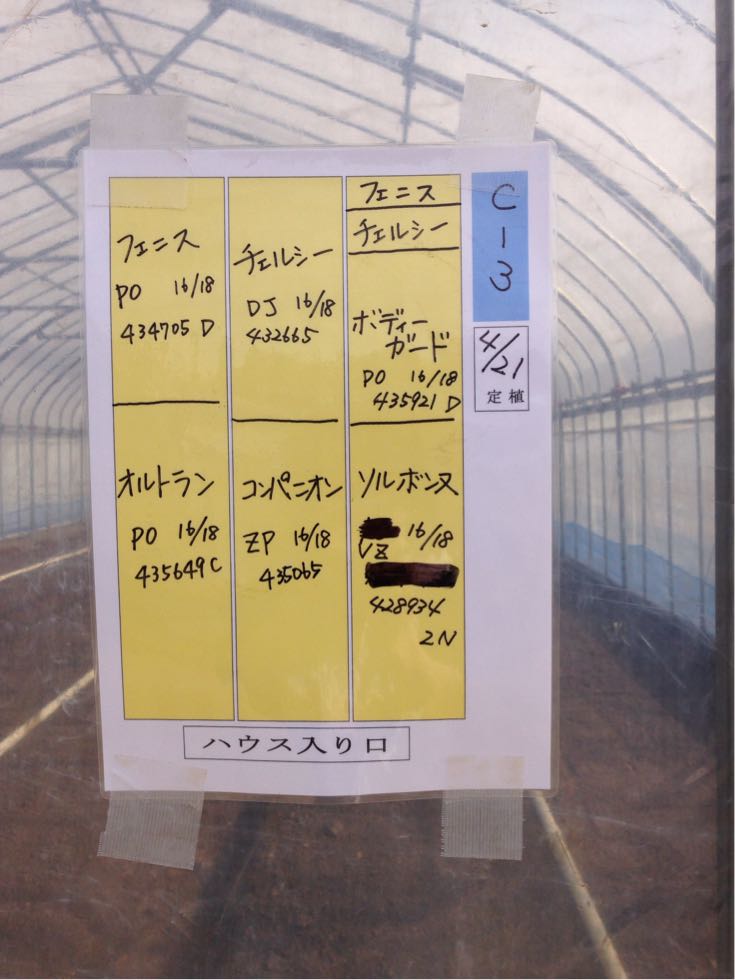 フェニス
PO 16/18
434705 D
オルトラン
PO 16/18
435649C
チェルシー
DJ 16/18
432665
コンパニオン
ZP 16/18
435065
フェニス
チェルシー
ボディー
ガード
PO 16/18
435921 D
ソルボンヌ
16/18
VZ
428934
2N
C-3
4/21
定植
ハウス入り口